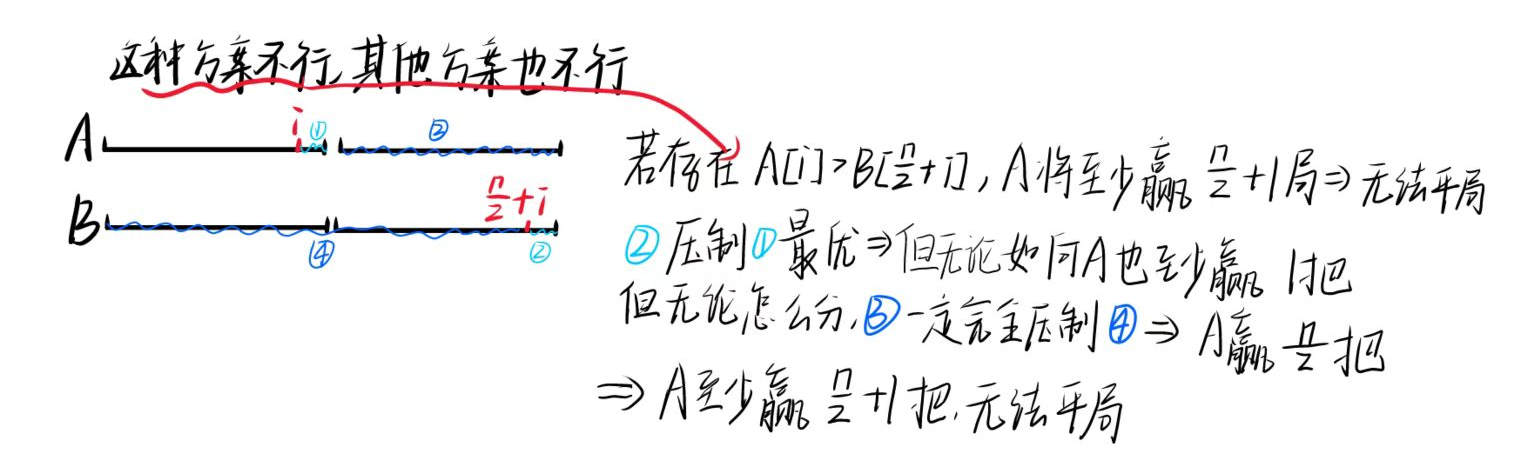 这种方案不行,其他方案也不行
A i ① ③
若存在 A[i]>B[n/2+i], A将至少赢 n/2+1局⇒无法平局
B n/2+i ④ ②
②压制①最优⇒但无论如何A也至少赢 1把
但无论怎么分,③一定完全压制④⇒ A赢 n/2 把
⇒A至少赢 n/2+1把,无法平局